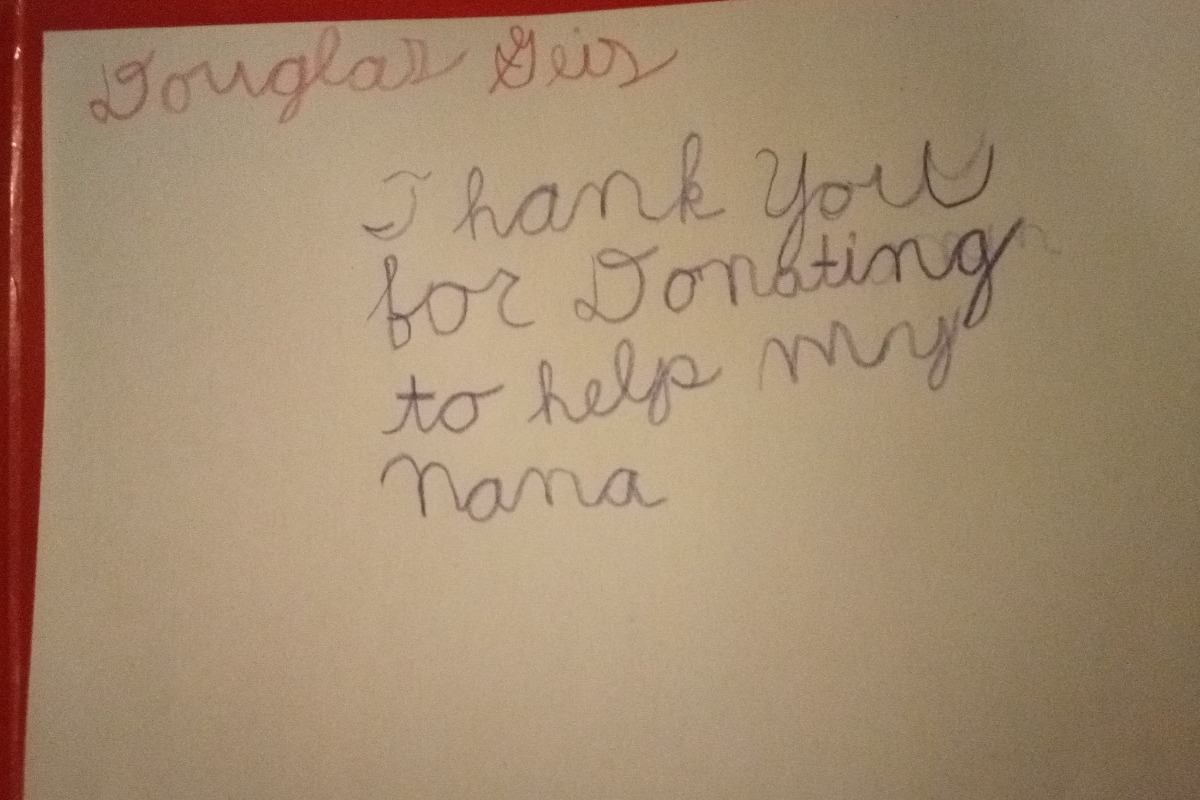 Douglas Geis
Thank You
for Donating
to help my
Nana